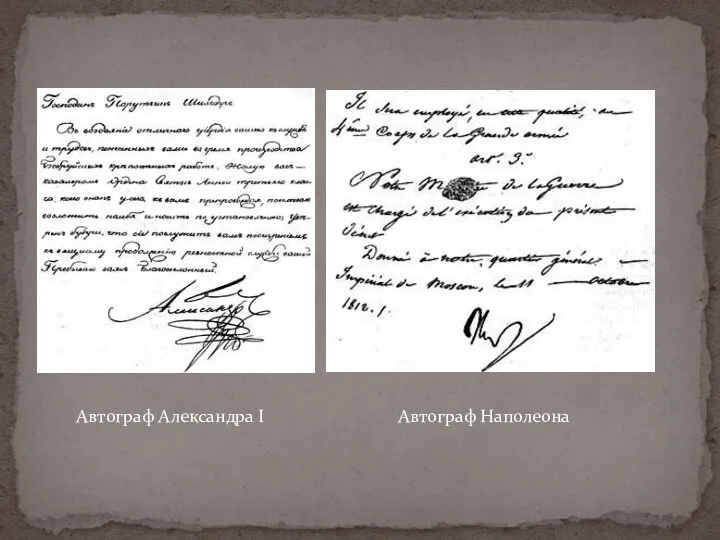 Господинъ Порутчикъ Шильдеръ
Въ воздаяніе отличнаго усердія вашего къ службѣ
и трудовъ, понесенныхъ вами во время производства
Бобруйскихъ крѣпостныхъ работъ, Жалую васъ
кавалеромъ Ордена Святыя Анны третьяго клас-
са, коего знакъ у сего къ вамъ препровождая, повелѣваю
возложить на себя и носить по установленію; увѣ-
ренъ будучи, что сіе послужитъ вамъ поощреніемъ
къ вящшему продолженію ревностной службы вашей
Пребываю вамъ благосклонный.
Александръ
Il sera employé, en cette qualité, au
4ème Corps de la Grande armée
art. 3.
Notre Ministre de la Guerre
est chargé de l'exécution du présent
décret
Donné à notre quartier général
Impérial de Moscou, le 11 octobre
1812.
Автограф Александра I
Автограф Наполеона